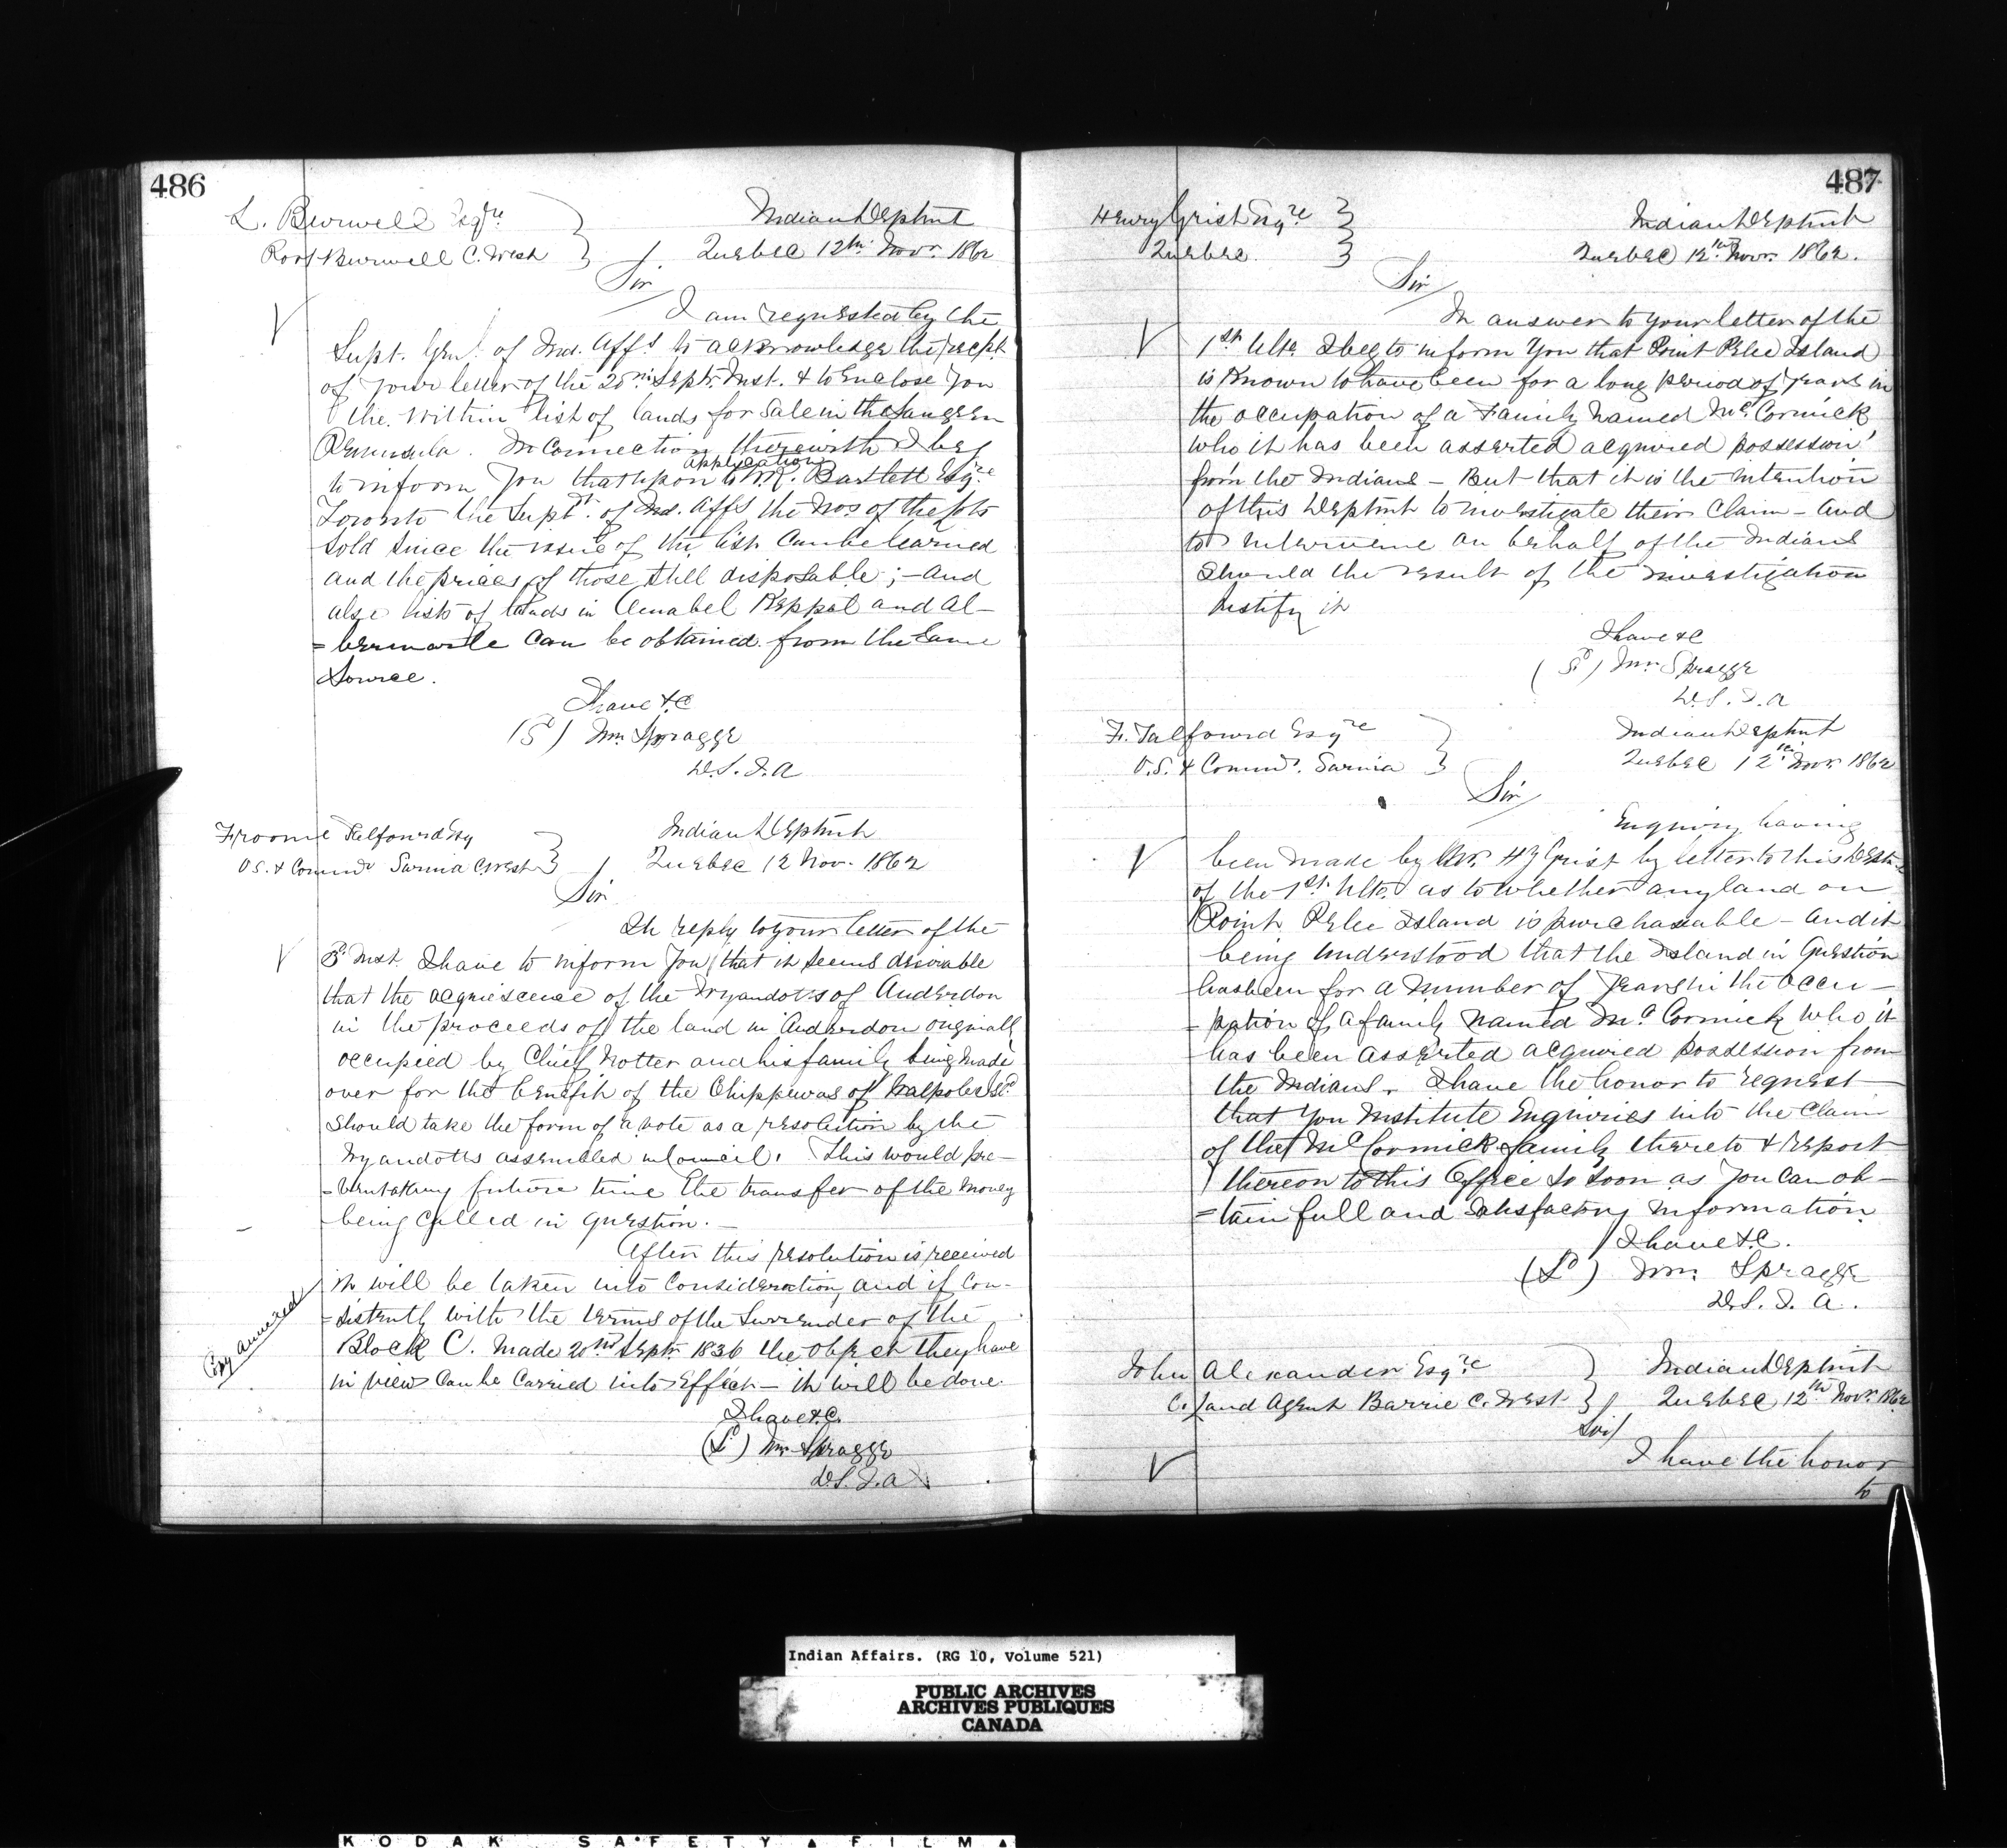 486
L. Burwell Esqre
Port Burwell C. West
Indian Deptmt
Quebec 12th Novr. 1862
Sir
I am requested by the
Supt. Genl. of Ind. Affs to acknowledge the recpt
of your letter of the 20th Septr. Inst. & to Enclose you
the within list of lands for sale in the Saugeen
Peninsula. In Connection therewith I beg
application
to inform you that upon to W. R. Bartlett Esqre
Toronto the Supt. of Ind. Affs the Nos of the lots
sold since the issue of the list can be learned
and the prices of those still disposable; – and
also lists of lands in Amabel Keppel and Al–
=bermarle can be obtained from the same
source.
I have &c
(Sd) Wm. Spragge
D.S.I.A
Froome Talfourd Esq
V.S. & Commr Sarnia C. West
Indian Deptmt
Quebec 12 Nov. 1862
Sir
In reply to your letter of the
3d Inst. I have to inform you that it seems desirable
that the acquiescence of the Wyandotts of Anderdon
in the proceeds of the land in Anderdon originally
occupied by Chief Notter and his family being made
over for the benefit of the Chippewas of Walpole Isd
should take the form of a vote as a resolution by the
Wyandotts assembled in Council. This would pre–
=vent at any future time the transfer of the money
being called in question. –
After this resolution is received
it will be taken into Consideration, and if Con-
=sistently with the terms of the Surrender of the
Block C. made 20nd Septr. 1836 the object they have
in view can be carried into effect – it will be done.
Copy annexed
I have &c.
(Sd) Wm. Spragge
D.S.I.A
487
Henry Grist Esqre
Quebec.
Indian Deptmt
Quebec 12th Novr. 1862.
Sir
In answer to your letter of the
1st Ulto. I beg to inform you that Point Pelee Island
is known to have been for a long period of years in
the occupation of a Family named McCormick
who it has been asserted acquired possession
from the Indians – But that it is the intention
of this Deptmt to investigate their Claim – and
to intervene on behalf of the Indians
should the result of the investigation
justify it
I have &c
(Sd) Wm. Spragge
D.S.I.A
F. Talfourd Esqre
V.S. & Commr. Sarnia
Indian Deptmt
Quebec 12th Novr. 1862
Sir
Enquiry having
been made by Mr. Hy Grist by letter to this Deptmt
of the 1st. Ulto. as to whether any land on
Point Pelee Island is purchasable – and it
being understood that the Island in question
has been for a number of years in the occu–
=pation of a family named McCormick who it
has been asserted acquired possession from
the Indians. I have the honor to request
that you institute Enquiries into the claim
of the McCormick family thereto & report
thereon to this Office so soon as you can ob–
=tain full and satisfactory information
I have &c.
(Sd) Wm. Spragge
D.S.I.A.
John Alexander Esqre
C. Land Agent Barrie C. West
Indian Deptmt
Quebec 12th Novr. 1862
Sir
I have the honor
to
Indian Affairs. (RG 10, Volume 521)
PUBLIC ARCHIVES
ARCHIVES PUBLIQUES
CANADA
KODAK SAFETY FILM